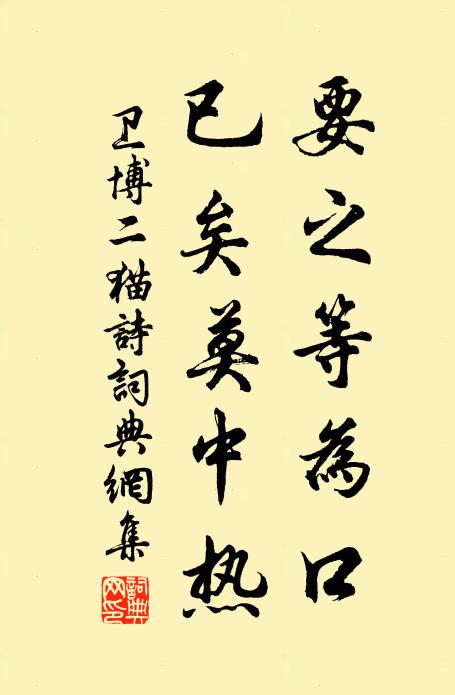 要之等為口
已矣莫中热
卫博二猫詩詞典網集
詞典網印